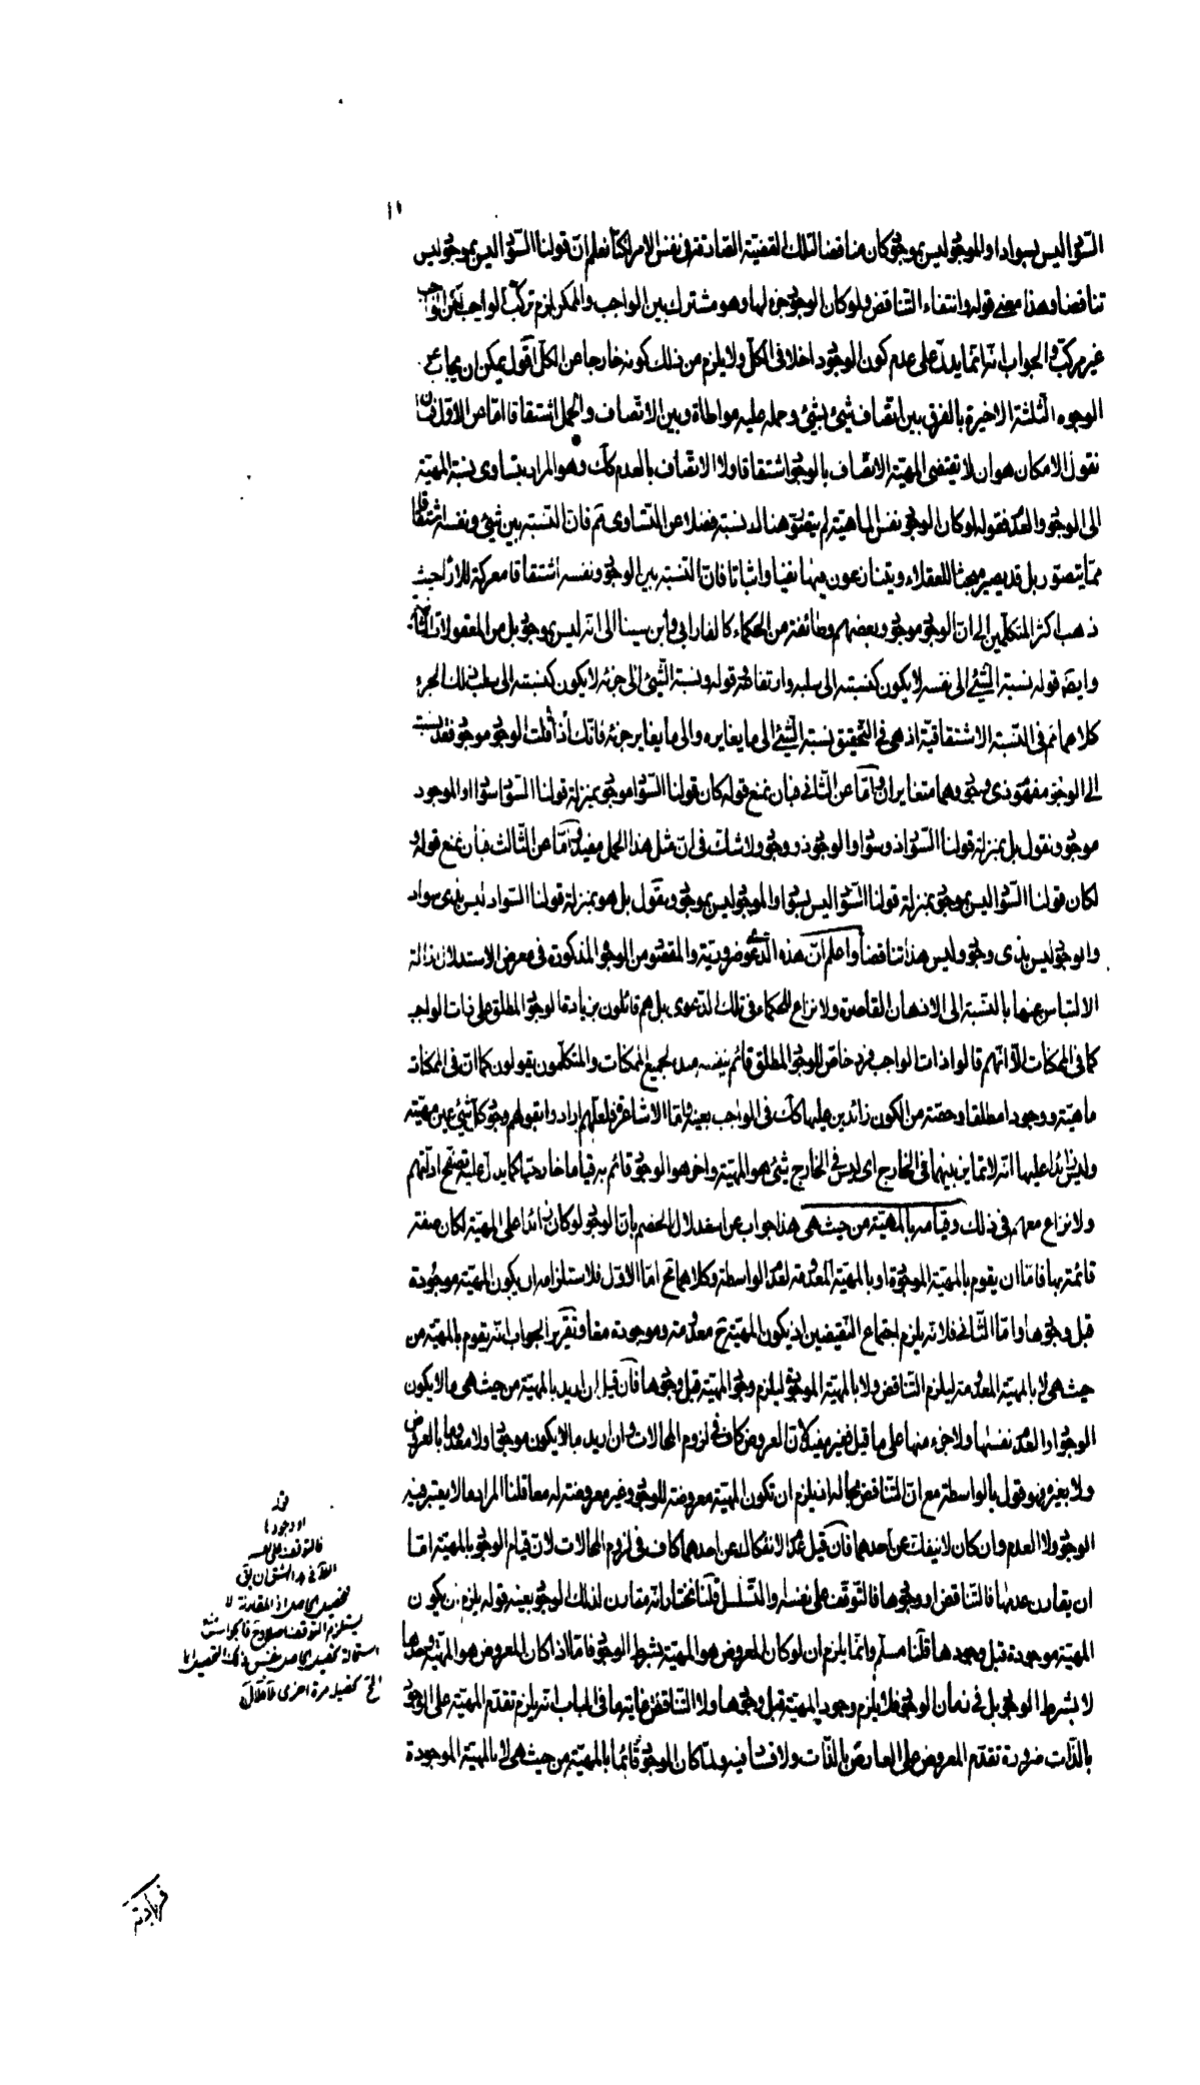 ١١
السواد ليس بسواد او الموجود ليس بموجود كان مناقضا لتلك القضية الصادقة فى نفس الامر لكنا نعلم ان قولنا السواد ليس بموجود ليس
تناقضا وهذا معنى قوله وانتفاء التناقض ولو كان الوجود جزء لها وهو مشترك بين الواجب والممكن لزم تركب الواجب
غير مركب والجواب انه انما يدل على عدم كون الوجود داخلا فى الكل ولا يلزم من ذلك كونه خارجا عن الكل اقول يمكن ان يجاب عن
الوجوه الثلثة الاخيرة بالفرق بين اتصاف شيئ بشيئ وحمله عليه مواطاة وبين الاتصاف والحمل اشتقاقا اما عن الاول فان
نقول الامكان هو ان لا يقتضى المهية الاتصاف بالوجود اشتقاقا ولا الاتصاف بالعدم كك وهو المراد بتساوى نسبة المهية
الى الوجود والعدم فقوله لو كان الوجود نفس الماهية لم يتصور هناك نسبة فضلا عن التساوى ثم فان النسبة بين شيئ ونفسه اشتقاقا
مما يتصور بل قد يصير مبحثا للعقلاء ويتنازعون فيها نفيا واثباتا فان النسبة بين الوجود ونفسه اشتقاقا معركة للاراء حيث
ذهب اكثر المتكلمين الى ان الوجود موجود وبعضهم وطائفة من الحكماء كالفارابى وابن سينا الى انه ليس بموجود بل من المعقولات الثانية
وايضا قوله نسبة الشيئ الى نفسه لا يكون كنسبته الى سلبه وارتفاعه وقوله ونسبة الشيئ الى جزئه لا يكون كنسبته الى سلب ذلك الجزء
كلاهما ثم فى النسبة الاشتقاقية اذ هى فى التحقيق نسبة الشيئ الى ما يغايره والى ما يغاير جزئه فانك اذا قلت الوجود موجود فقد نسبت
الى الوجود مفهوم ذى وجود وهما متغايران واما عن الثانى فبان نمنع قوله كان قولنا السواد موجود بمنزلة قولنا السواد سواد او الموجود
موجود ونقول بل بمنزلة قولنا السواد ذو سواد او الوجود ذو وجود ولا شك فى ان مثل هذا الحمل مفيد واما عن الثالث فبان نمنع قوله
لكان قولنا السواد ليس بموجود بمنزلة قولنا السواد ليس بسواد او الموجود ليس بموجود ونقول بل هو بمنزلة قولنا السواد ليس بذى سواد
والوجود ليس بذى وجود وليس هذا تناقضا واعلم ان هذه الدعوى ضرورية والمقصود من الوجوه المذكورة فى معرض الاستدلال ازالة
الالتباس عنها بالنسبة الى الاذهان القاصرة ولا نزاع للحكماء فى تلك الدعوى بل هم قائلون بزيادة الوجود المطلق على ذات الواجب
كما فى الممكنات الا انهم قالوا ذات الواجب فرد خاص للوجود المطلق قائم بنفسه مبدء لجميع الممكنات والمتكلمون يقولون كما ان فى الممكنات
ماهية ووجودا مطلقا وحصة من الكون زائدين عليها كك فى الواجب بعينه واما الاشاعرة فلعلهم ارادوا بقولهم وجود كل شيئ عين مهيته
وليس زائدا عليها انه لا تمايز بينهما فى الخارج اى ليس فى الخارج شيئ هو المهية واخر هو الوجود قائم به قياما خارجيا كما يدل عليه تصفح ادلتهم
ولا نزاع معهم فى ذلك وقيامه بالمهية من حيث هى هذا جواب عن استدلال الخصم بان الوجود لو كان زائدا على المهية لكان صفة
قائمة بها فاما ان يقوم بالمهية الموجودة او بالمهية المعدومة لعدم الواسطة وكلاهما مح اما الاول فلاستلزامه ان يكون المهية موجودة
قبل وجودها واما الثانى فلانه يلزم اجتماع النقيضين اذ يكون المهية ح معدومة وموجودة معا وتقرير الجواب انه يقوم بالمهية من
حيث هى لا بالمهية المعدومة ليلزم التناقض ولا بالمهية الموجودة ليلزم وجود المهية قبل وجودها فان قيل ان اريد بالمهية من حيث هى ما لا يكون
الوجود او العدم نفسها ولا جزء منها على ما قيل فغير مفيد لان العروض كاف فى لزوم المحالات وان اريد ما لا يكون موجودا ولا معدوما بالعروض
ولا بغيره فهو قول بالواسطة مع ان التناقض بحاله اذ يلزم ان تكون المهية معروضة للوجود وغير معروضة له معا قلنا المراد ما لا يعتبر فيه
الوجود ولا العدم وان كان لا ينفك عن احدهما فان قيل عدم الانفكاك عن احدهما كاف فى لزوم المحالات لان قيام الوجود بالمهية اما
ان يقارن عدمها فالتناقض او وجودها فالتوقف على نفسه او التسلسل قلنا نختار انه مقارن لذلك الوجود بعينه قوله يلزم ان يكون
المهية موجودة قبل وجودها قلنا مسلم وانما يلزم ان لو كان المعروض هو المهية بشرط الوجود فاما اذا كان المعروض هو المهية وحدها
لا بشرط الوجود بل فى زمان الوجود فلا يلزم وجود المهية قبل وجودها ولا التناقض غاية ما فى الباب انه يلزم تقدم المهية على الوجود
بالذات ضرورة تقدم المعروض على العارض بالذات ولا فساد فيه ولما كان الوجود قائما بالمهية من حيث هى لا بالمهية الموجودة
قوله
او وجودها
فالتوقف على نفسه
ان يق
تحصيل الحاصل اذ المقارنة لا
يستلزم التوقف
استحالة تحصيل الحاصل بنفس ذلك التحصيل انما
المح تحصيله مرة اخرى